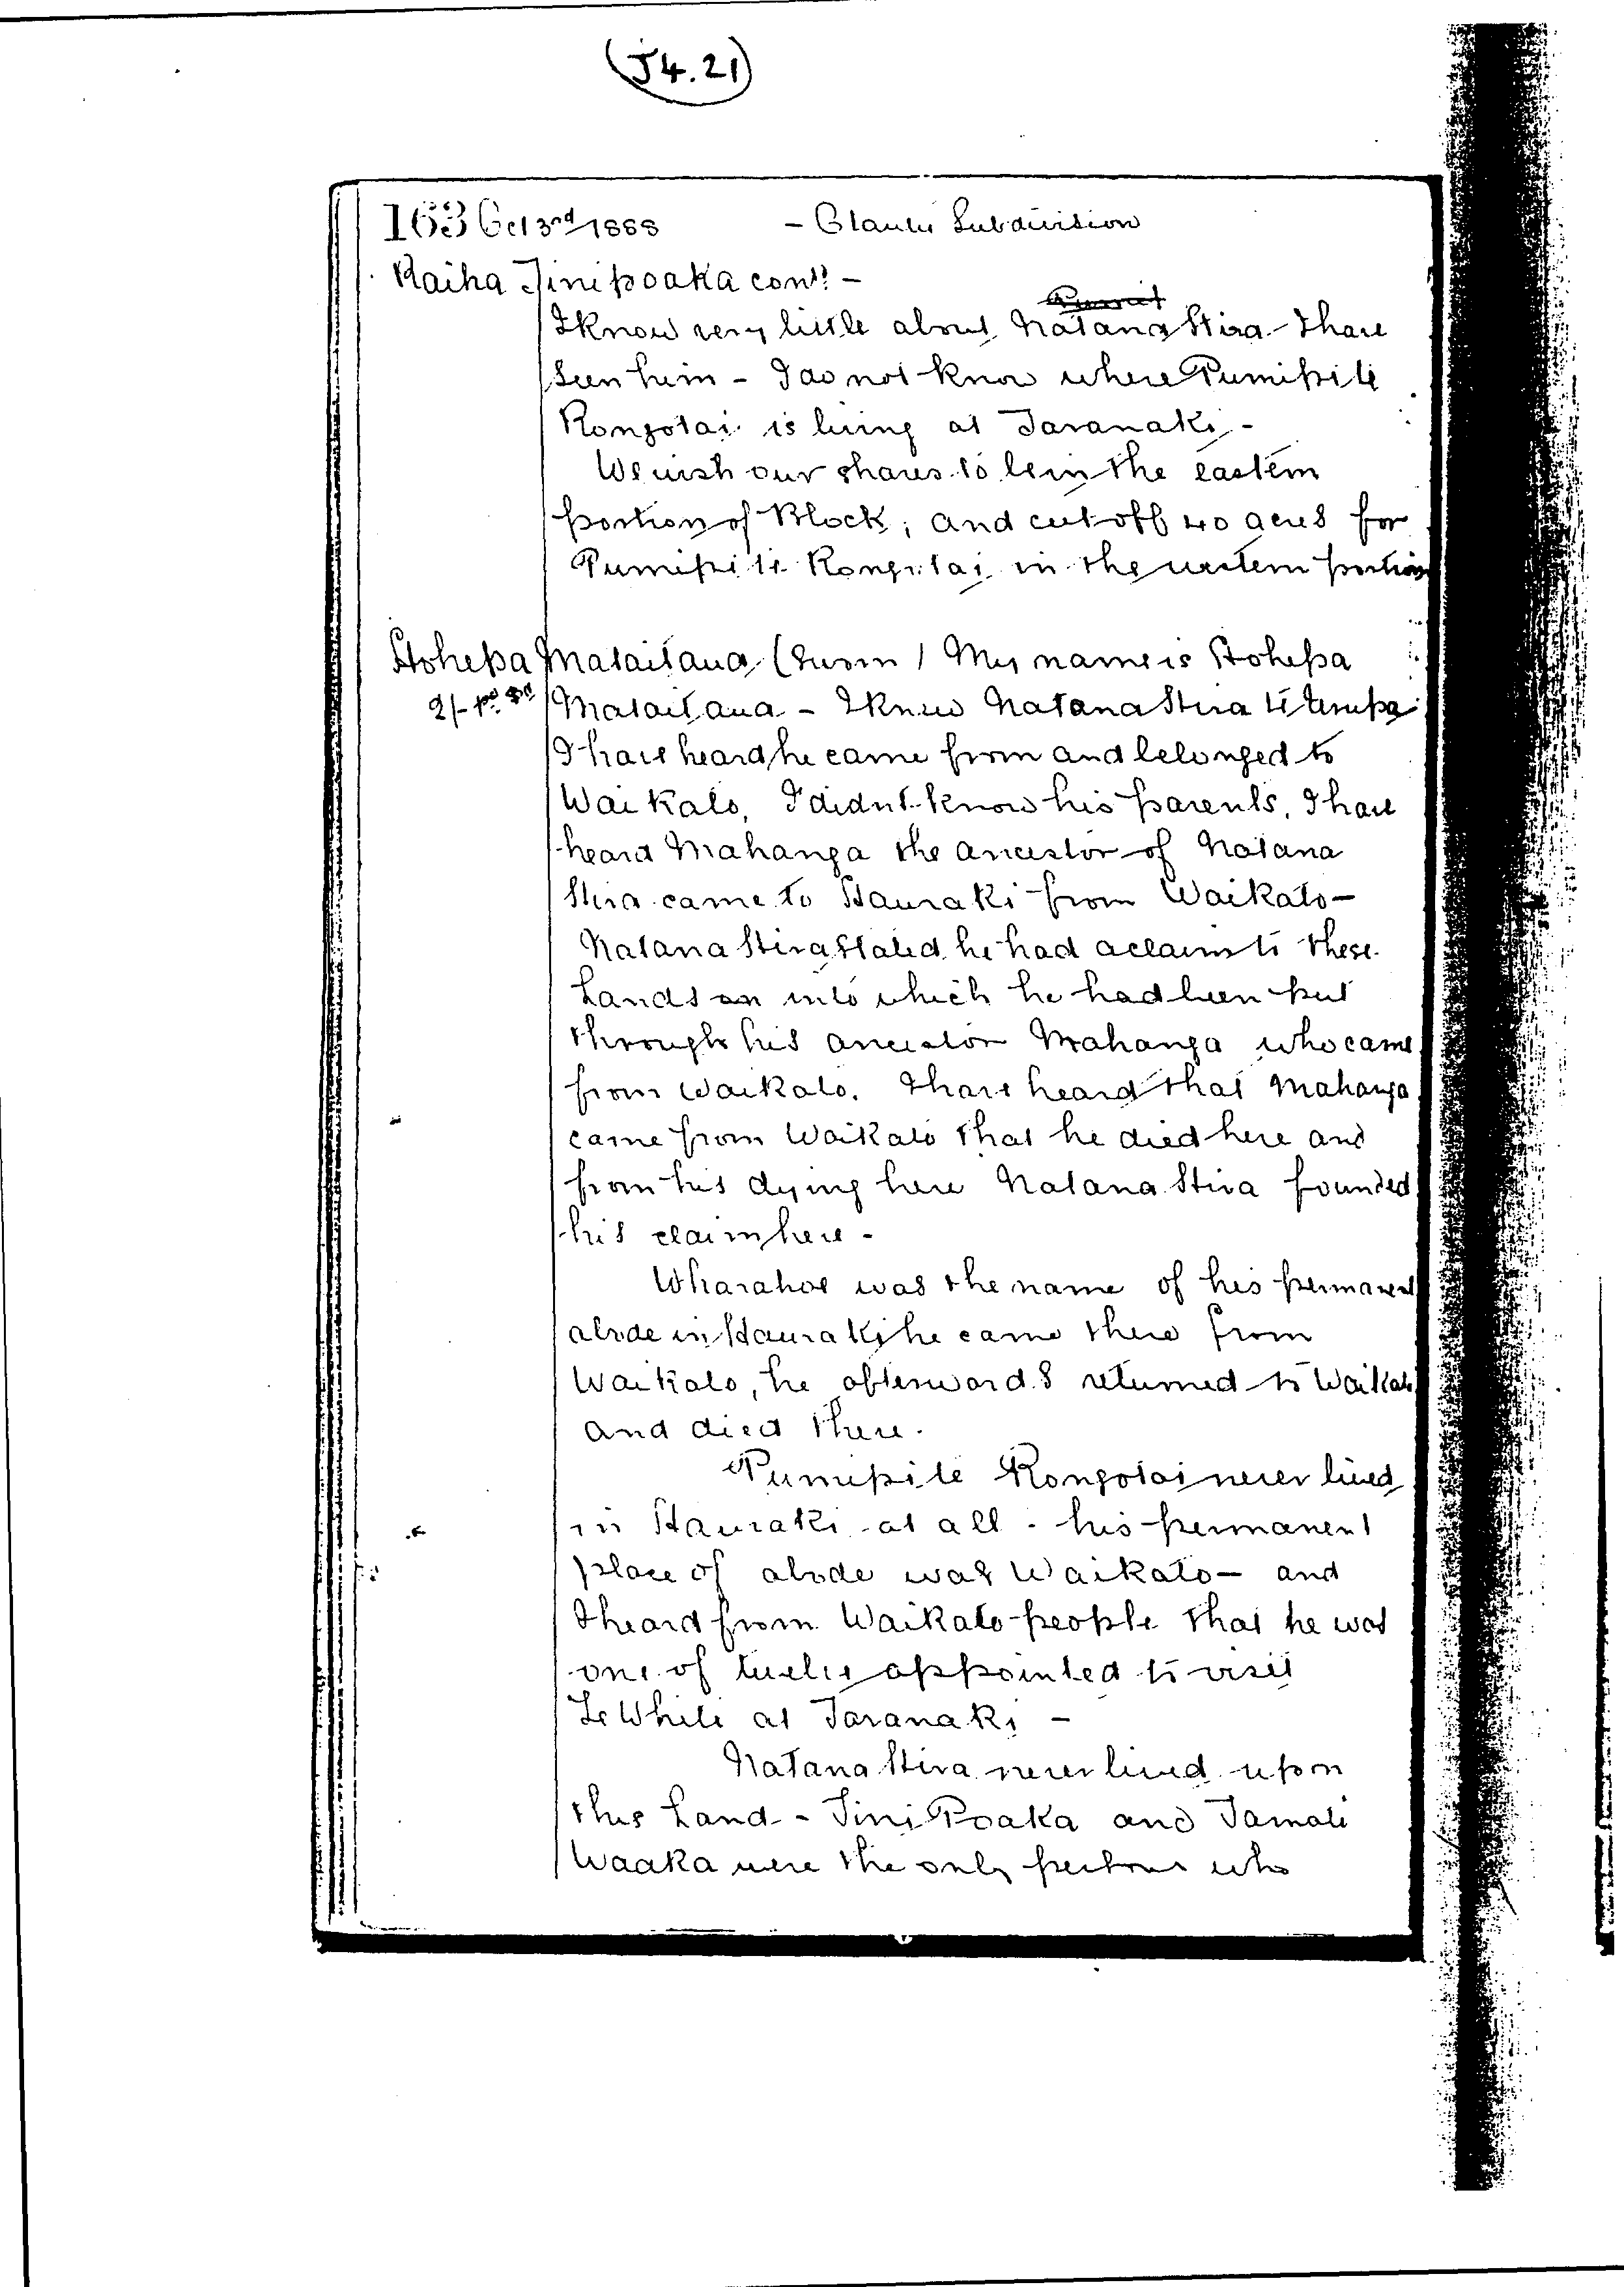 (J4.21)
163 Oct 3rd/1888 - Otautu Subdivision
Raiha Tinipoaka cont: -
I know very little about Natana Hira - I have
seen him - I do not know where Pumipite
Rongotai is living at Taranaki -
We wish our shares to be in the eastern
portion of Block; and cut off 40 acres for
Pumipiti Rongotai in the western portion
Hohepa Mataitaua (sworn) My name is Hohepa
2/- pd
Mataitaua - I knew Natana Hira
I have heard he came from and belonged to
Waikato, I didnt know his parents, I have
heard Mahanga the ancestor of Natana
Hira came to Hauraki from Waikato -
Natana Hira stated he had a claim to these
Lands into which he had been put
through his ancestor Mahanga who came
from Waikato. I have heard that Mahanga
came from Waikato that he died here and
from his dying here Natana Hira founded
his claim here -
Wharahoe was the name of his permanent
abode in Hauraki, he came there from
Waikato, he afterwards returned to Waikato
and died there.
Pumipite Rongotai never lived
in Hauraki at all - his permanent
place of abode was Waikato - and
I heard from Waikato people that he was
one of twelve appointed to visit
Te Whiti at Taranaki -
Natana Hira never lived upon
this Land - Tini Poaka and Tamati
Waaka were the only persons who